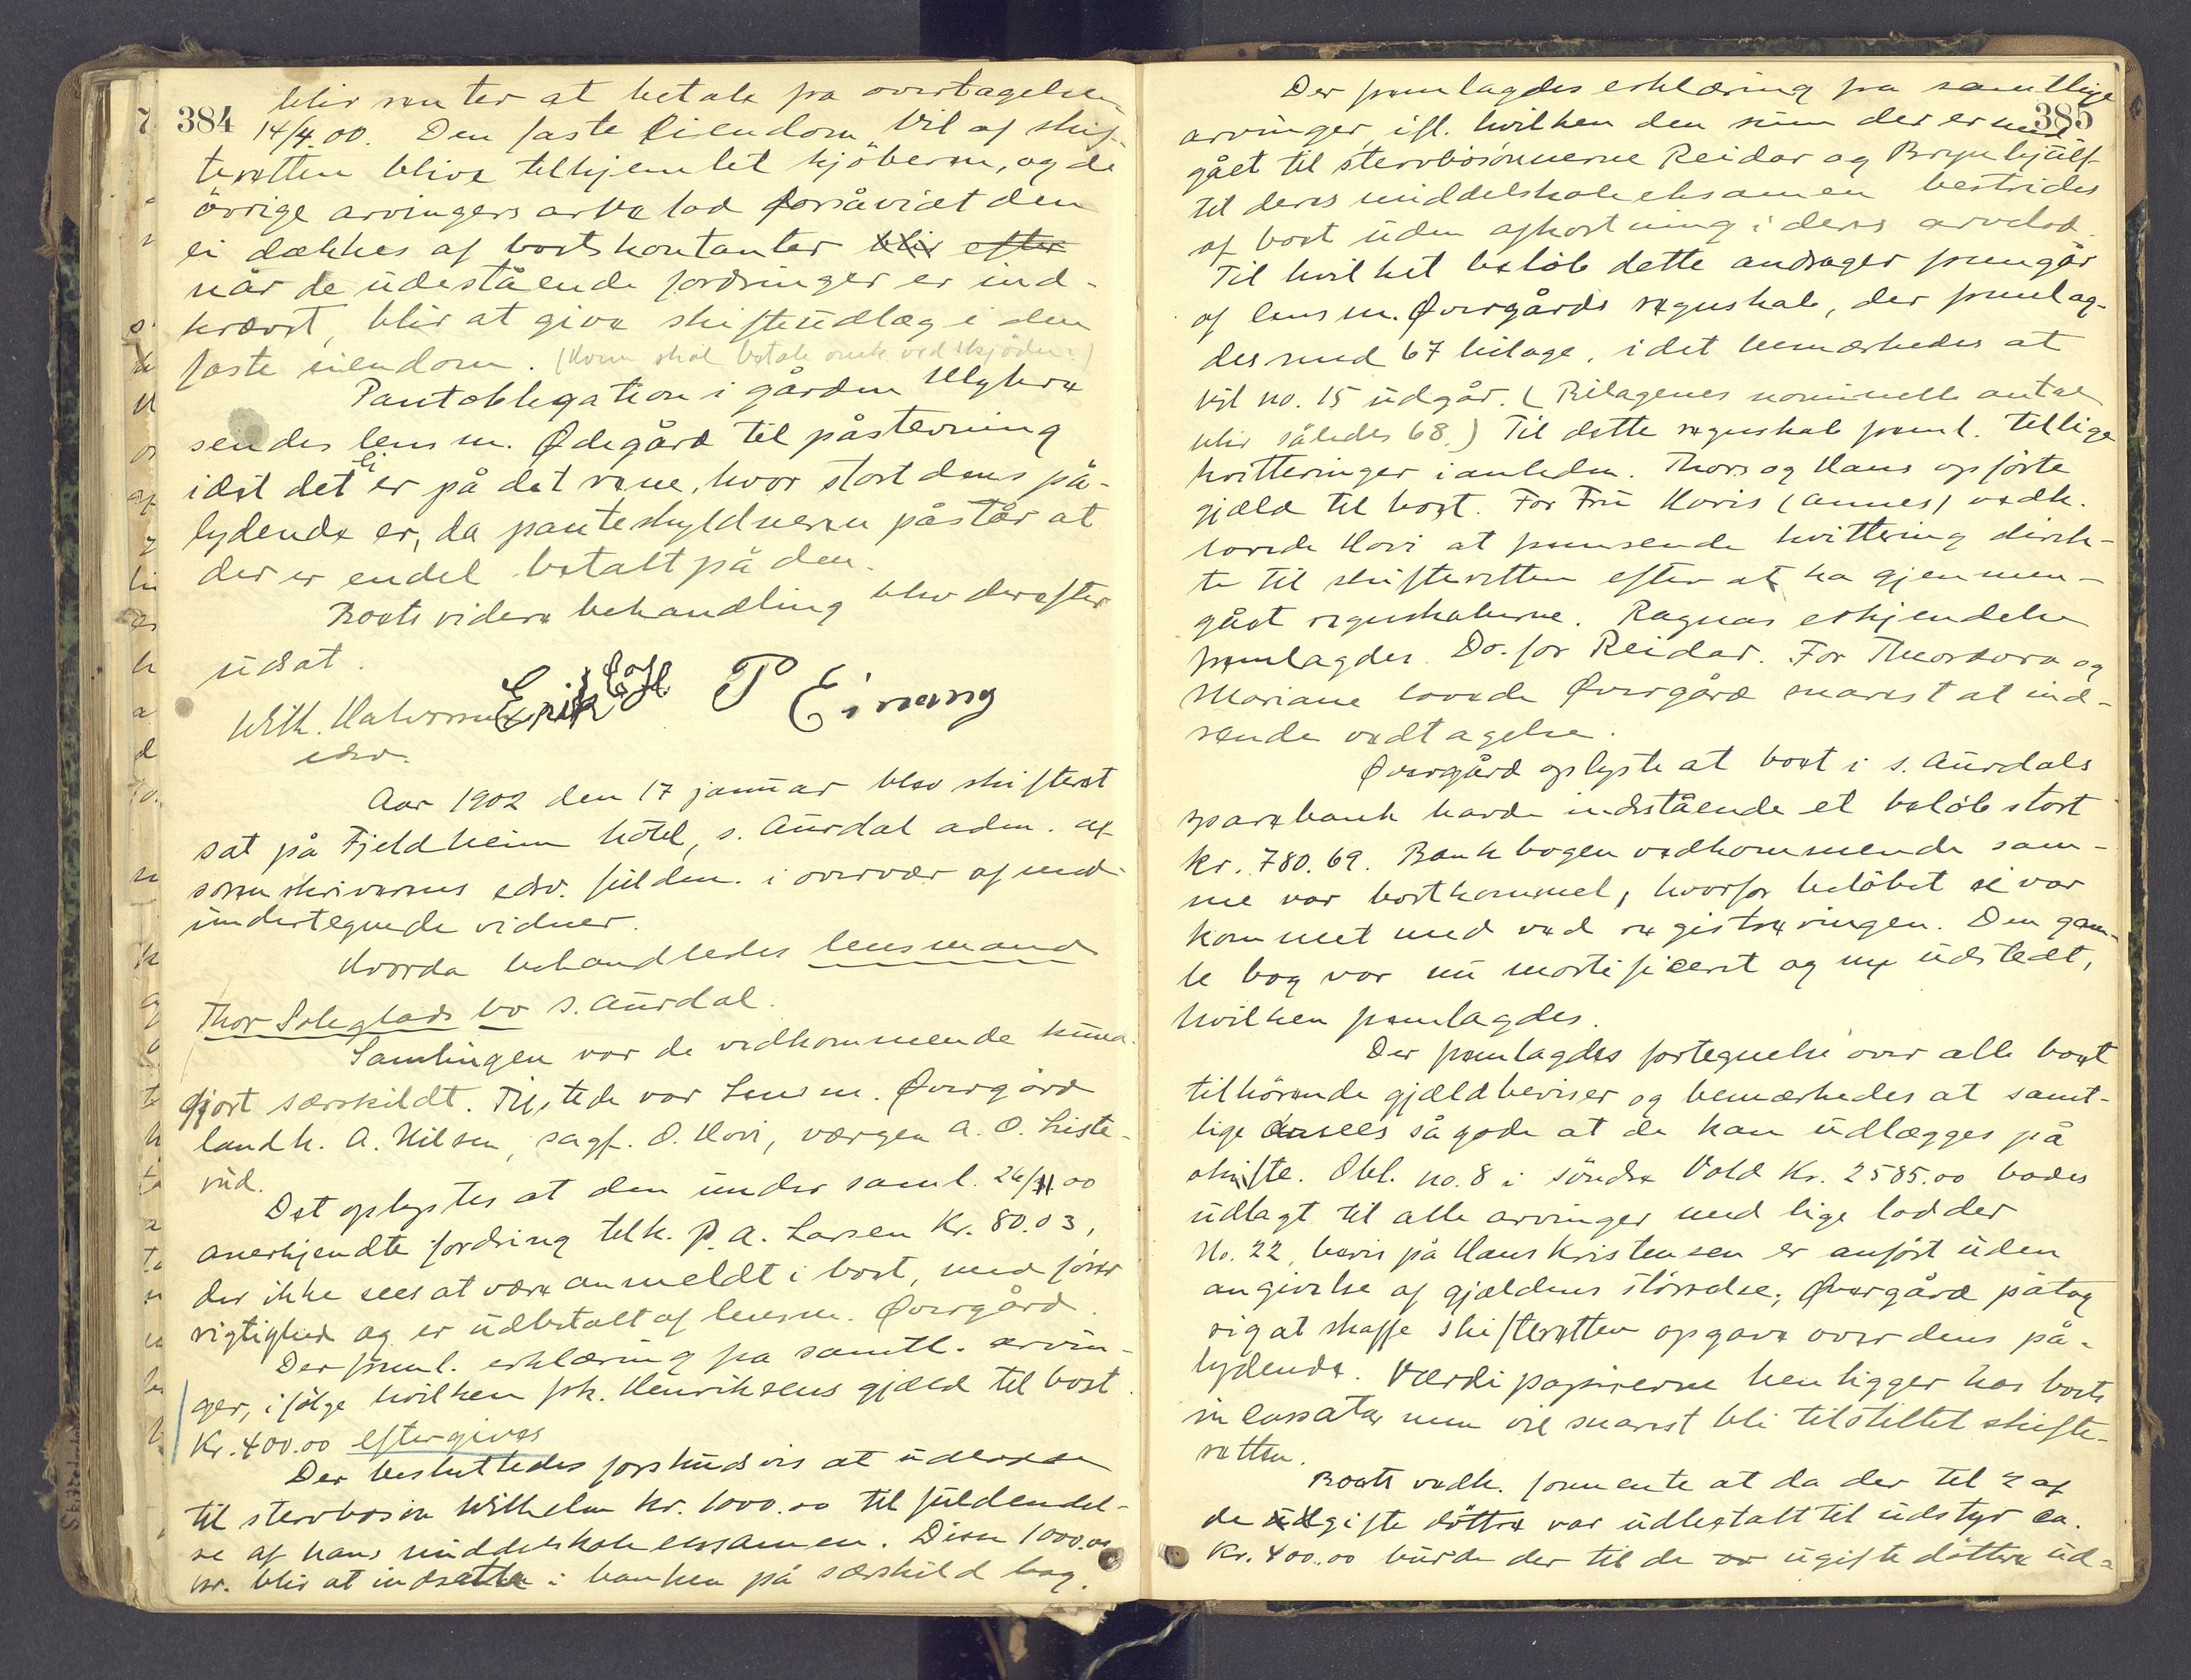 384
blir renter at betale fra overtagelsen
14/4.00. Den faste eiendom vil af skif-
teretten blive tilhjemlet kjöberen, og de
övrige arvingers arvelod forsåvidt den
ei dækkes af boets kontanter blir efter
når de udestående fordringer er ind-
krævet, blir at give skifteudlæg i den
faste eiendom. (Kom skal betale omk ved skjödn.)
Pantobligation i gården
sendes lensm. Ødegård til påstevning
idet det ei er på det rene, hvor stort dens på-
lydende er, da panteskyldneren påstår at
der er endel betalt på den.
Boets videre behandling blev derefter
udsat.
Wilh. Halvorsen Erik E. H. P Einang
edsv.
Aar 1902 den 17 januar blev skifteret
sat på Fjeldheim hôtel, s. Aurdal adm. af
sorenskriverens edsv. fuldm. i overvær af med-
undertegnede vidner.
Hvorda behandledes lensmand
Thor Soleglads bo s. Aurdal.
Samlingen var de vedkommende kund-
gjort særskildt. Tilstede var lensm. Øvergård
landh. A. Nilsen, sagf. O. Hovi, værgen A. O. Liste-
rud.
Det oplystes at den under saml. 26/11 00
anerkjendte fordring telk. P. A. Larsen Kr. 80.03,
der ikke sees at være anmeldt i boet, medförer
rigtighed og er udbetalt af lensm. Øvergård.
Der freml. erklæring fra samtl. arvin-
ger, ifölge hvilken frk. Henriksens gjæld til boet
Kr. 400.00 eftergives
Der besluttedes forskudsvis at uderede
til stervbosön Wilhelm kr. 1000.00 til fuldendel-
se af hans middelskoleexsamen. Disse 1000.00
kr. blir at indsætte i banken på særskild bog.
385
Der fremlagdes erklæring fra samtlige
arvinger, ifl. hvilken den sum der er med
gået til stervbosönnerne Reidar og Brynhjulf
til deres middelskoleeksamen bestrides
af boet uden afkortning i deres arvelod.
Til hvilket belöb dette andrager fremgår
af lensm. Øvergårds regnskab, der fremlag-
des med 67 bilage, idet bemærkedes at
bil no. 15 udgår. (Bilagenes nominelle antal
blir således 68.) Til dette regnskab freml. tillige
kvitteringer i anledn. Thors og Hans opförte
gjæld til boet. For Fru Hovis (Annes) vedk.
lovede Hovi at fremsende kvittering direk-
te til skifteretten efter at ha gjennem-
gået regnskaberne. Ragnas erkjendelse
fremlagdes. Do. for Reidar. For Theodora og
Mariane lovede Øvergård snarest at ind-
sende vedtagelse.
Øvergård oplyste at boet i s. Aurdals
sparebank havde indestående et belöb stort
kr. 780.69. Bankbogen vedkommende sam-
me var bortkommet, hvorfor belöbet ei var
kommet med ved registreringen. Den gam-
le bog var nu mortificeret og ny udstedt,
hvilken fremlagdes.
Der fremlagdes fortegnelse over alle boet
tilhörende gjældbeviser og bemærkedes at samt-
lige ansees så gode at de kan udlægges på
skifte. Obl. no. 8 i söndre Vold Kr. 2585.00 bades
udlagt til alle arvinger med lige lodder
No. 22, bevis på Hans Kristensen er anfört uden
angivelse af gjældens störrelse; Øvergård påtog
sig at skaffe skifteretten opgave over dens på-
lydende. Værdipapirerne henligger hos boets
incassator men vil snarest bli tilstillet skifte-
retten.
Boets vedk. formente at da der til 2 af
de gifte döttre var udbetalt til udstyr ca.
Kr. 400.00 burde der til de ugifte döttre ud-